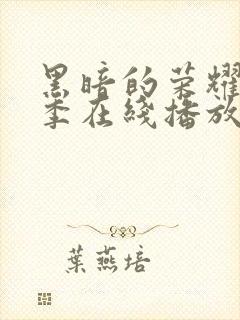 黑暗的荣耀
季在綫播放
葉燕培